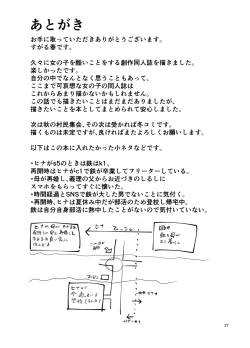 あとがき
お手に取っていただきありがとうございます。
すがる番です。
久々に女の子を酷いことをする創作同人誌を描きました。
楽しかったです。
自分の中でなんとなく思うこともあって、
ここまで可哀想な女の子の同人誌は
これからあまり描かないかもしれません。
この話でも描きたいことはまだまだありましたが、
描きたいことを本としてまとめられて安心しました。
次は秋の村民集会、その次は受かれば冬コミです。
描くものは未定ですが、良ければまたよろしくお願いします。
以下はこの本に入れたかった小ネタなどです。
・ヒナがs5のときは鉄はk1、
再開時はヒナがc1で鉄が卒業してフリーターしている。
・母が再婚し、義理の父からお近づきのしるしに
スマホをもらってすぐに懐いた。
・時間経過とSNSで鉄が大した男でないことに気付く。
・再開時、ヒナは夏休み中だが部活のため登校し帰宅中。
鉄は自分自身部活に熱中したことがないので気付いていない。
27